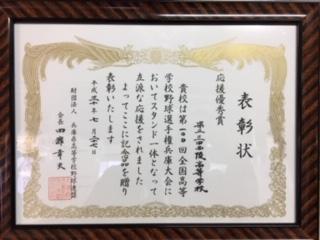 表彰状
応援優秀賞
県立三田西陵高等学校
貴校は第一〇〇回全国高等
学校野球選手権兵庫大会に
おいてスタンド一体となって
立派な応援をされました
よってここに記念品を贈り
表彰いたします
平成三十年七月二十七日
財団法人 兵庫県高等学校野球連盟
会長